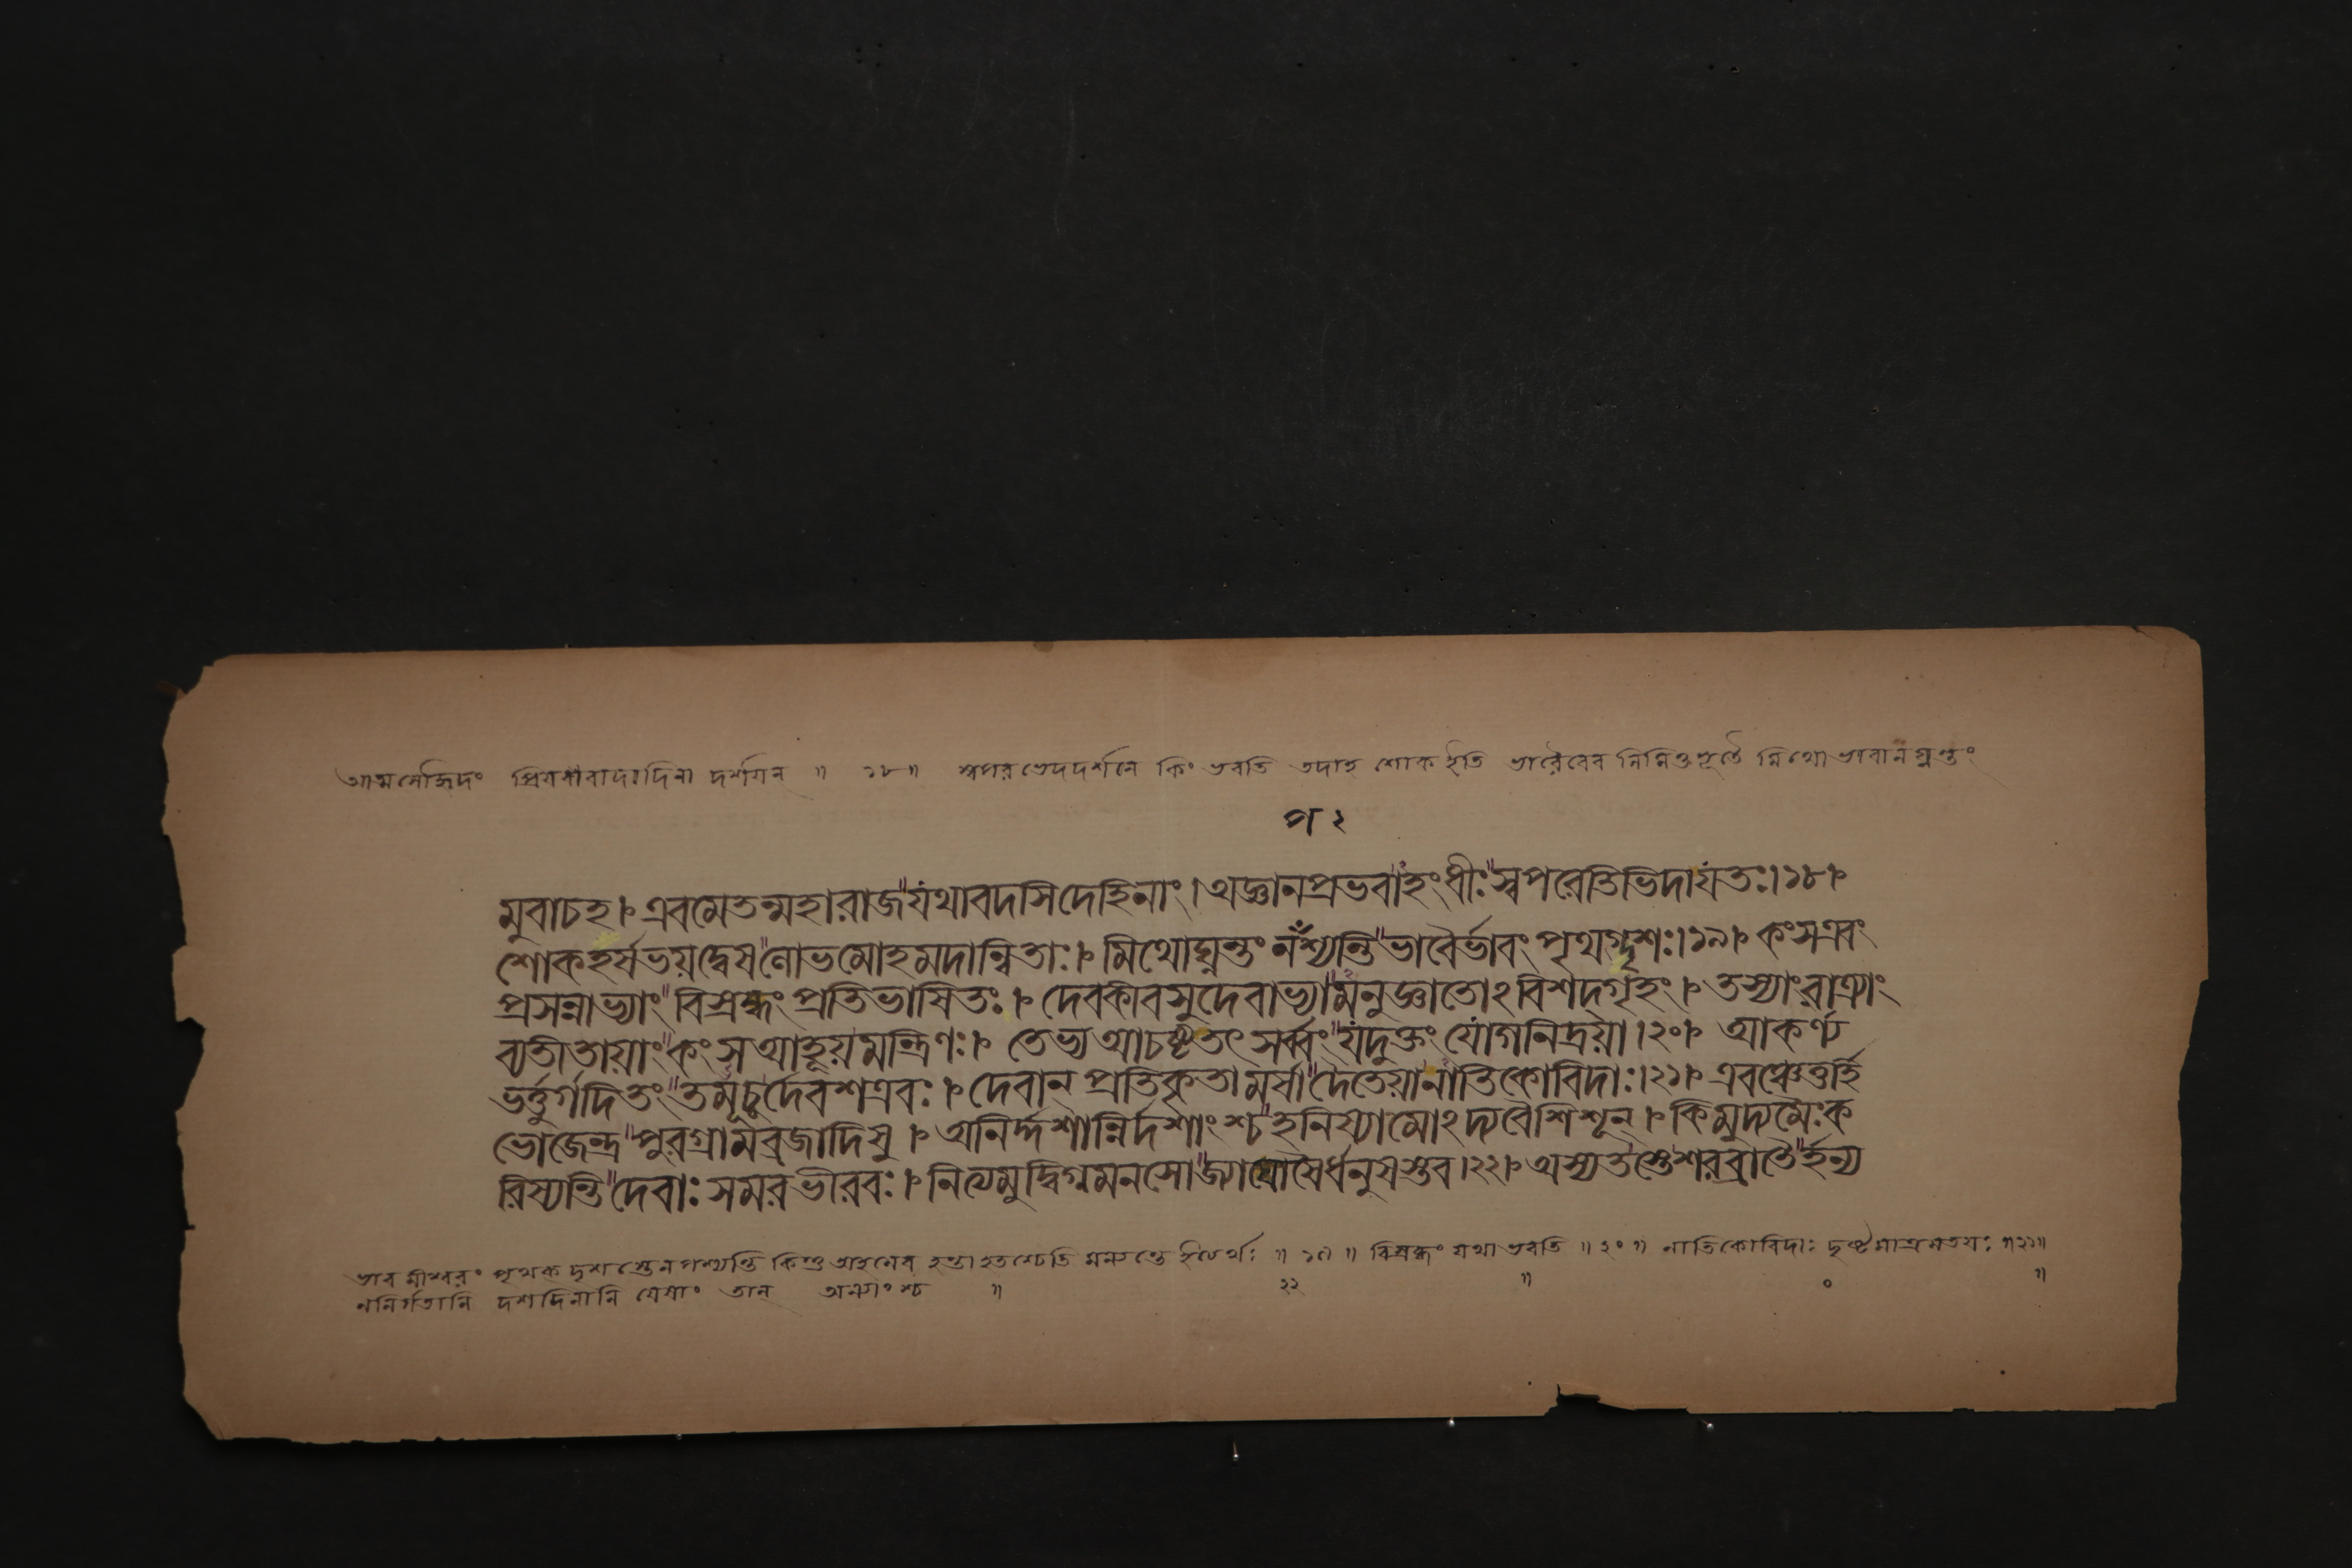 আত্মনোহ্নিদং প্রিয়বাবাদাদিনা দর্শয়ন্ ॥ ১৮॥ স্বপরভেদদর্শনে কিং ভবতি তদাহ শোক ইতি ভাবৈরেব নিমিত্তভূতৈ র্মিথো ভাবান্ ঘ্নন্তং
প ২
মুবাচহ।৮ এবমেতন্মহারাজ"যথাবদসিদেহিনাং।অজ্ঞানপ্রভবাহং ধীঃ"স্বপরেতিভিদাযতঃ।১৮।৮
শোকহর্ষভয়দ্বেষ"লোভমোহমদান্বিতাঃ।৮ মিথোঘ্নন্তং নপশ্যন্তি"ভাবৈর্ভাবং পৃথগ্দৃশঃ।১৯।৮ কংসএবং
প্রসন্নাভ্যাং"বিস্রব্ধং প্রতিভাষিতঃ।৮ দেবকীবসুদেবাভ্যা"মনুজ্ঞাতোঽবিশদ্গৃহং।৮ তস্যাংরাত্র্যাং
ব্যতীতায়াং"কংসআহূয়মন্ত্রিণঃ।৮ তেভ্যআচষ্টতৎ সর্ব্বং"যদুক্তং যোগনিদ্রয়া।২০।৮ আকর্ণ্য
ভর্ত্তুর্গদিতং"তমূচুর্দেবশত্রবঃ।৮ দেবান্ প্রতিকৃতামর্ষা"দৈতেয়ানাতিকোবিদাঃ।২১।৮ এবঞ্চেত্তর্হি
ভোজেন্দ্র"পুরগ্রামব্রজাদিষু।৮ অনির্দ্দশান্নির্দশাংশ্চ"হনিষ্যামোঽদ্যবৈশিশূন্।৮ কিমুদ্যমৈঃক
রিষ্যন্তি"দেবাঃসমরভীরবঃ।৮ নিত্যমুদ্বিগ্নমনসো"জ্যাঘোষৈর্ধনুষস্তব।২২।৮ অস্যতস্তেশরব্রাতৈ"র্হন্য
ভাব মীশ্বরং পৃথক্ দৃশ স্তেন পশ্যন্তি কিন্তু অহমেব হন্তা হতশ্চেতি মন্যন্তে ইত্যর্থঃ ॥ ১৯ ॥ বিস্রব্ধং যথা ভবতি ॥ ২০ ॥ নাতিকোবিদাঃ দৃষ্টমাত্রমতয়ঃ ॥২১॥
ননির্গতানি দশদিনানি যেষাং তান্ অন্যাংশ্চ ॥ ২২ ॥ ০ ॥